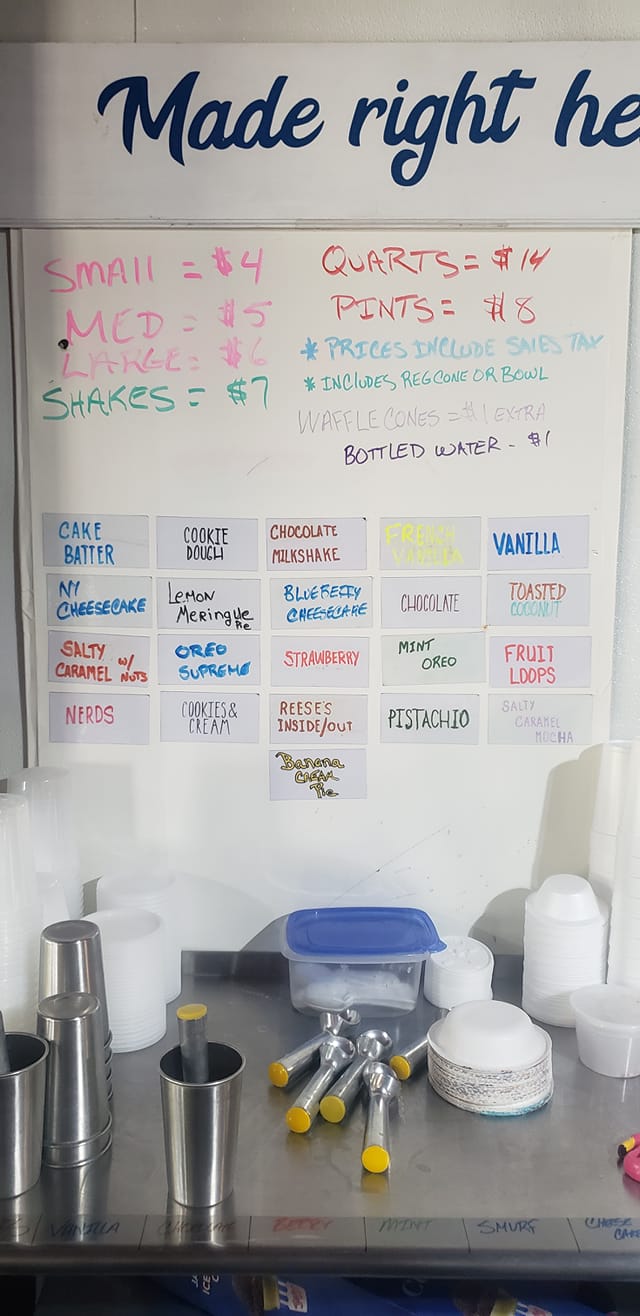 Made right he
SMAll = $4
MED = $5
LARGE = $6
SHAKES = $7
QUARTS = $14
PINTS = $8
* PRICES INCLUDE SALES TAX
* INCLUDES REG CONE OR BOWL
WAFFLE CONES = $1 EXTRA
BOTTLED WATER - $1
CAKE
BATTER
COOKIE
DOUGH
CHOCOLATE
MILKSHAKE
FRENCH
VANILLA
VANILLA
NY
CHEESECAKE
Lemon
Meringue
Pie
BLUEBERRY
CHEESECAKE
CHOCOLATE
TOASTED
COCONUT
SALTY
CARAMEL w/ NUTS
OREO
SUPREME
STRAWBERRY
MINT
OREO
FRUIT
LOOPS
NERDS
COOKIES &
CREAM
REESE'S
INSIDE/OUT
PISTACHIO
SALTY
CARAMEL
MOCHA
Banana
CREAM
Pie
VANILLA
CHOCOLATE
BERRY
MINT
SMURF
CHEESE
CAKE